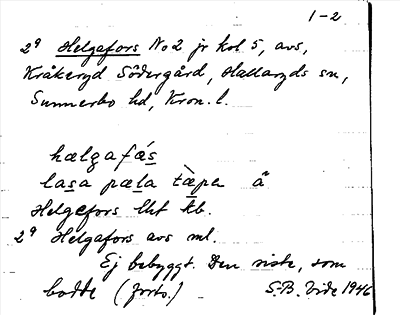 1-2
2° Helgafors No 2 jr kol 5, avs,
Kråkeryd Södergård, Hallaryds sn,
Sunnerbo hd, Kron. l.
hælgafa͟s
lasa pæla tæpa å
Helgefors lht kb.
2° Helgafors avs ml.
Ej bebyggt. Den siste, som
bodde (forts.) S.B. Vide 1946